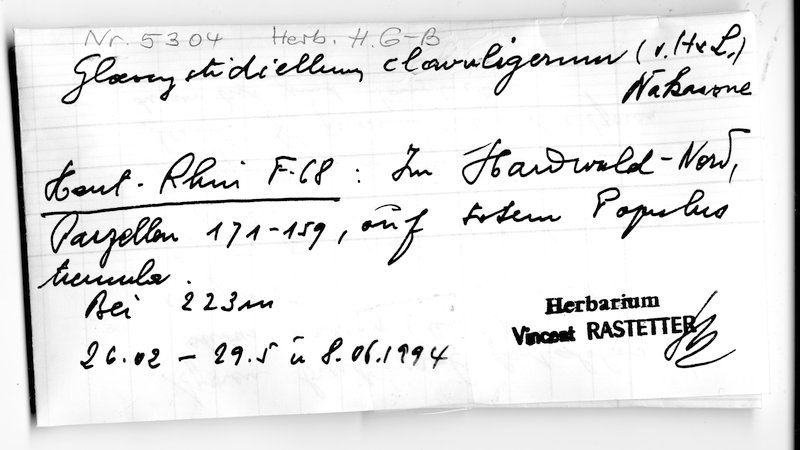 Nr. 5304 Herb. H. G-B
Gloeocystidiellum clavuligerum (v. H & L.)
Nakasone
Haut-Rhin F-68 : Im Hardwald-Nord,
Parzellen 171-159, auf totem Populus
tremula.
Bei 223m
26.02 - 29.5 u 8.06.1994
Herbarium
Vincent RASTETTER